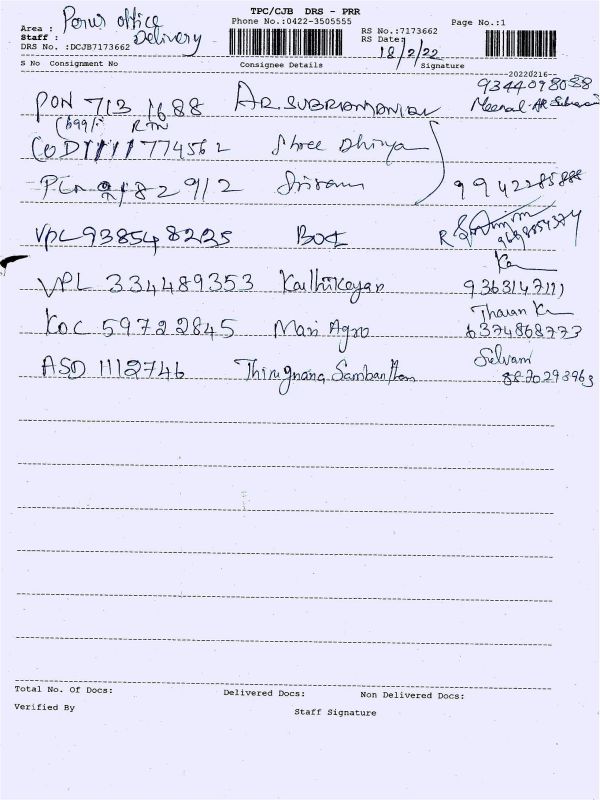 TPC/CJB DRS - PRR
Phone No.:0422-3505555 Page No.:1
Area : Perur office
Staff : Delivery
RS No.:7173662
RS Date: 18/2/22
DRS No. :DCJB7173662
S No Consignment No Consignee Details Signature
20220216--
9344098058
PON 713 1688 AR. SUBRAMANIAN Meenal AR
RTN
COD 774562 Shree Dhivya
Sriram 9942285888
VPL 938548225 BOI R
VPL 334489353 Kaithikeyan 9363147111
Ka
KOC 59722845 Mari Agro 6374868773
Selvam
ASD 1112746 Thirugnana Sambantham 8870293963
Total No. Of Docs: Delivered Docs: Non Delivered Docs:
Verified By Staff Signature